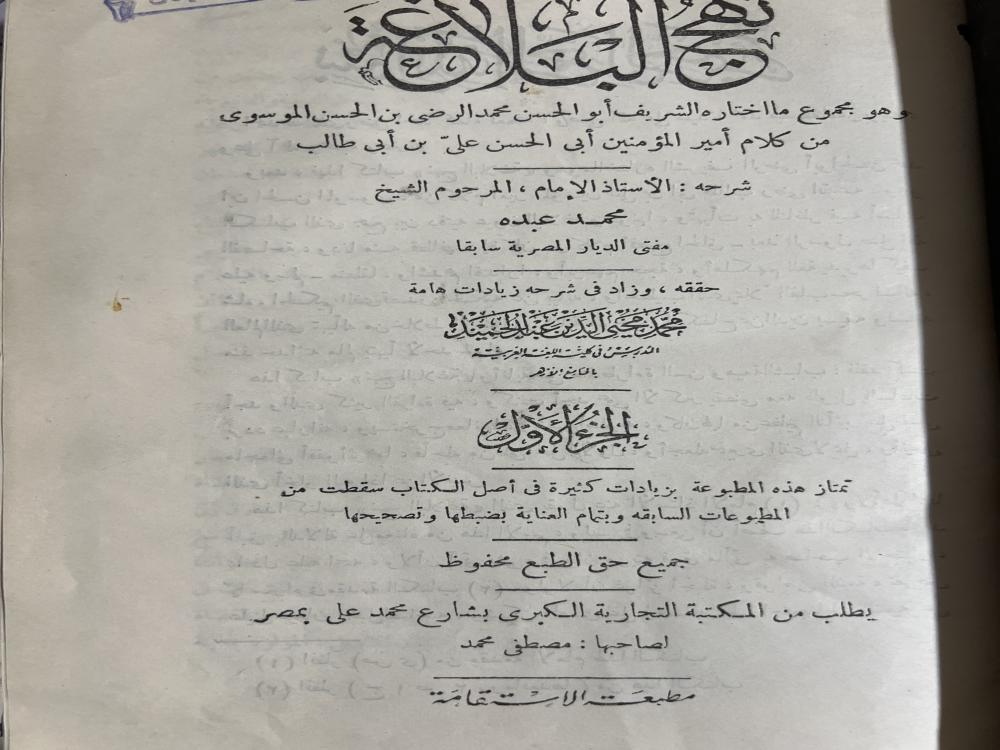 نهج البلاغة
وهو مجموع ما اختاره الشريف أبو الحسن محمد الرضى بن الحسن الموسوى
من كلام أمير المؤمنين أبى الحسن علىّ بن أبى طالب
شرحه : الأستاذ الإمام ، المرحوم الشيخ
محمد عبده
مفتى الديار المصرية سابقا
حققه ، وزاد فى شرحه زيادات هامة
محمد محيى الدين عبد الحميد
المدرس فى كلية اللغة العربية
بالجامع الأزهر
الجزء الأول
تمتاز هذه المطبوعة بزيادات كثيرة فى أصل الكتاب سقطت من
المطبوعات السابقه وبتمام العناية بضبطها وتصحيحها
جميع حق الطبع محفوظ
يطلب من المكتبة التجارية الكبرى بشارع محمد على بمصر
لصاحبها : مصطفى محمد
مطبعة الاستقامة